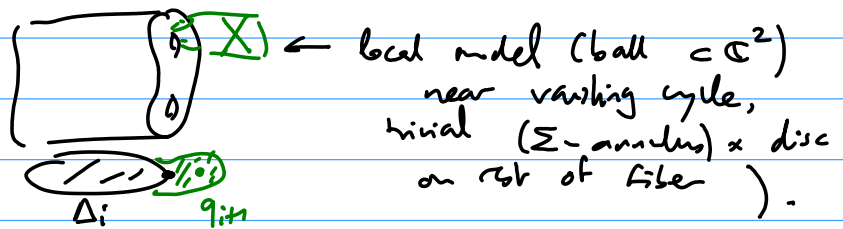 ← local model (ball ⊂ ℂ²)
near vanishing cycle,
trivial (Σ - annulus) × disc
on rest of fiber ).
Δᵢ qᵢ₊₁